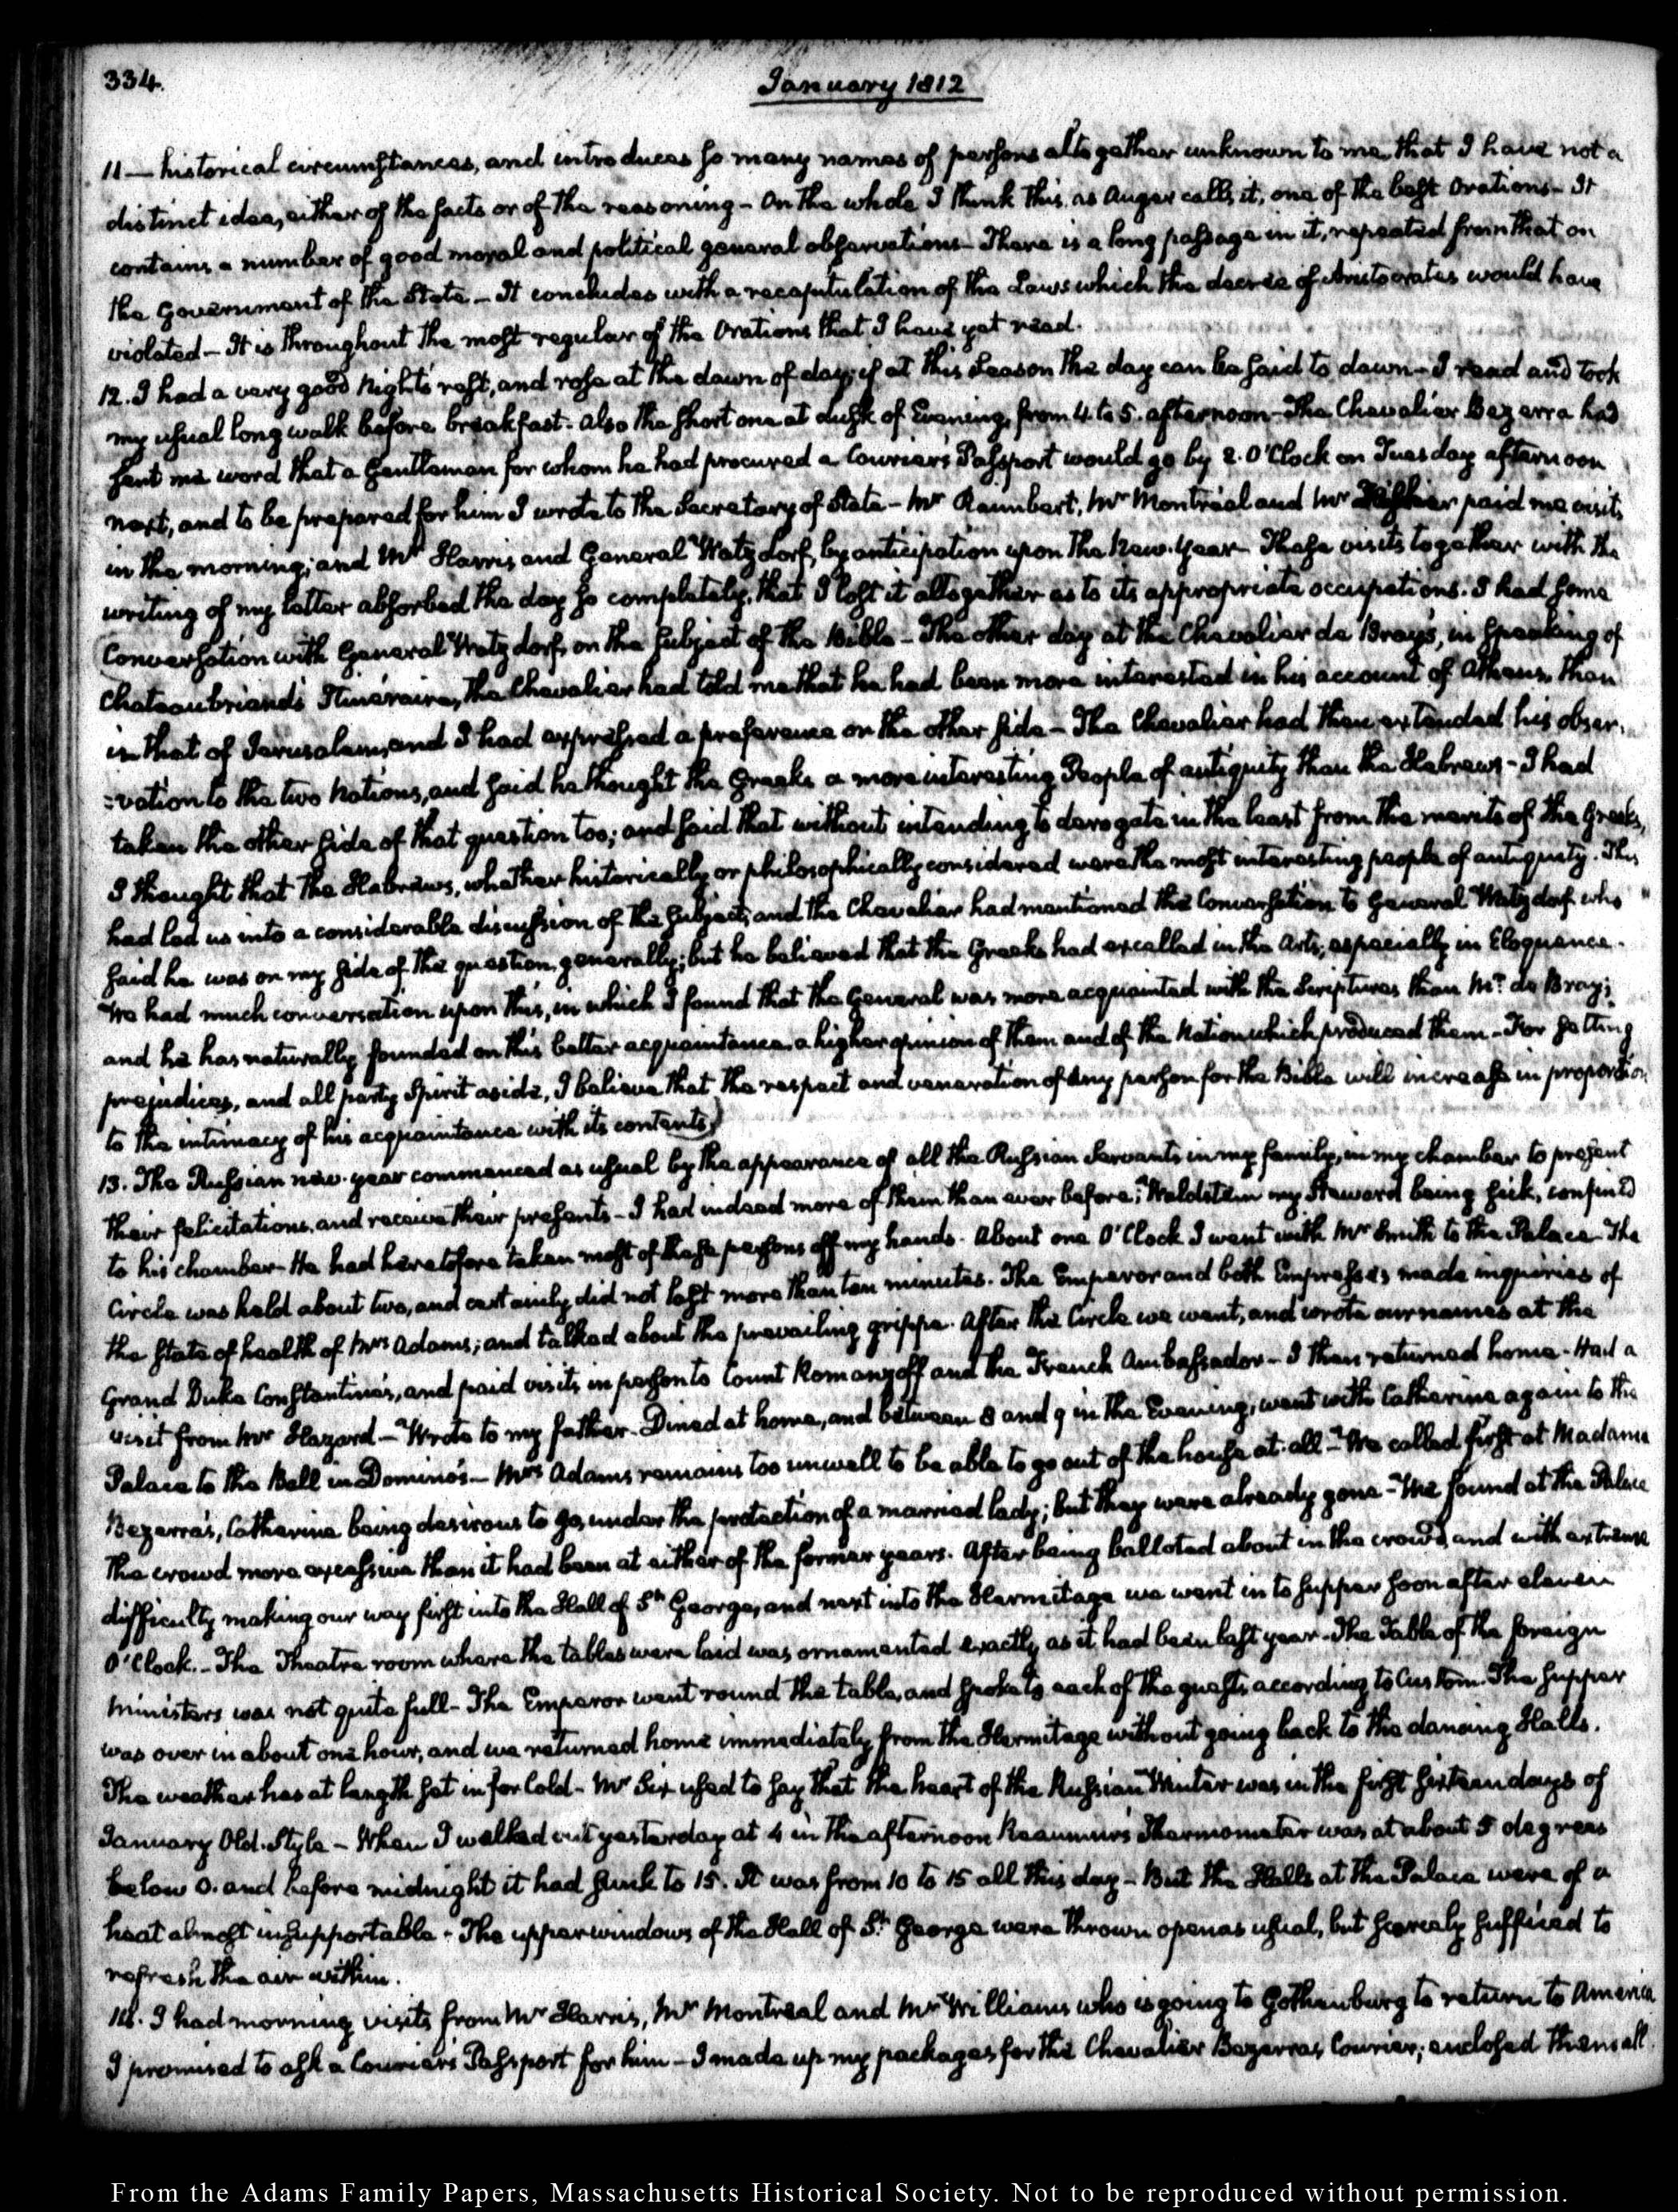 334.
January 1812
11 — historical circumstances, and introduces so many names of persons altogether unknown to me that I have not a
distinct idea, either of the facts or of the reasoning – On the whole I think this, as Auger calls it, one of the best Orations – It
contains a number of good moral and political general observations – There is a long passage in it, repeated from that on
the Government of the State – It concludes with a recapitulation of the Laws which the decree of Aristocrates would have
violated – It is throughout the most regular of the Orations that I have yet read.
12. I had a very good Night's rest, and rose at the dawn of day; if at this Season the day can be said to dawn – I read and took
my usual long walk before breakfast – also the short one at dusk of Evening, from 4 to 5. afternoon – The Chevalier Bezerra had
sent me word that a Gentleman for whom he had procured a Courier's Passport would go by 2. O'Clock on Tuesday afternoon
next, and to be prepared for him I wrote to the Secretary of State – Mr Raimbert, Mr Montréal and Mr paid me visits
in the morning; and Mr Harris and General Watzdorf, by anticipation upon the New-Year – These visits together with the
writing of my letter absorbed the day so completely, that I lost it altogether as to its appropriate occupations. I had some
Conversation with General Watzdorf, on the subject of the Bible – The other day at the Chevalier de Bray's, in speaking of
Chateaubriand's Itinéraire, the Chevalier had told me that he had been more interested in his account of Athens, than
in that of Jerusalem, and I had expressed a preference on the other side – The Chevalier had then extended his obser-
=vation to the two Nations, and said he thought the Greeks a more interesting People of antiquity than the Hebrews – I had
taken the other side of that question too; and said that without intending to derogate in the least from the merits of the Greeks,
I thought that the Hebrews, whether historically or philosophically considered were the most interesting people of antiquity. This
had led us into a considerable discussion of the subject, and the Chevalier had mentioned the Conversation to General Watzdorf who
said he was on my side of the question, generally; but he believed that the Greeks had excelled in the Arts, especially in Eloquence.
We had much conversation upon this, in which I found that the General was more acquainted with the Scriptures than Mr. de Bray;
and he has naturally founded on this better acquaintance, a higher opinion of them and of the Nation which produced them – For setting
prejudices, and all party spirit aside, I believe that the respect and veneration of any person for the Bible will increase in proportion
to the intimacy of his acquaintance with its contents)
13. The Russian new-year commenced as usual by the appearance of all the Russian Servants in my family, in my chamber to present
their felicitations, and receive their presents – I had indeed more of them than ever before; Waldstein my Steward being sick, confined
to his chamber – He had heretofore taken most of these persons off my hands. About one O'Clock I went with Mr Smith to the Palace – The
Circle was held about two, and certainly did not last more than ten minutes. The Emperor and both Empresses made inquiries of
the state of health of Mrs Adams; and talked about the prevailing grippe. After the Circle we went, and wrote our names at the
Grand Duke Constantine's, and paid visits in person to Count Romanzoff and the French Ambassador – I then returned home – Had a
visit from Mr Hazard – Wrote to my father – Dined at home, and between 8 and 9 in the Evening, went with Catherine again to the
Palace to the Ball in Domino's – Mrs Adams remains too unwell to be able to go out of the house at all – We called first at Madame
Bezerra's, Catherine being desirous to go, under the protection of a married lady; but they were already gone – We found at the Palace
the crowd more excessive than it had been at either of the former years. After being balloted about in the crowd, and with extreme
difficulty making our way first into the Hall of St George, and next into the Hermitage we went in to supper soon after eleven
O'Clock. – The Theatre room where the tables were laid was ornamented exactly as it had been last year – The Table of the foreign
Ministers was not quite full – The Emperor went round the table, and spoke to each of the guests, according to Custom. The supper
was over in about one hour, and we returned home immediately from the Hermitage without going back to the dancing Halls.
The weather has at length set in for Cold – Mr Six used to say that the heart of the Russian Winter was in the first sixteen days of
January Old-Style – When I walked out yesterday at 4 in the afternoon Reaumur's Thermometer was at about 5 degrees
below 0. and before midnight it had sunk to 15. It was from 10 to 15 all this day – But the Halls at the Palace were of a
heat almost insupportable – The upper windows of the Hall of St. George were thrown open as usual, but scarcely sufficed to
refresh the air within.
14. I had morning visits from Mr Harris, Mr Montreal and Mr Williams who is going to Gothenburg to return to America
I promised to ask a Courier's Passport for him – I made up my packages for the Chevalier Bezerra's Courier; enclosed them all
From the Adams Family Papers, Massachusetts Historical Society. Not to be reproduced without permission.